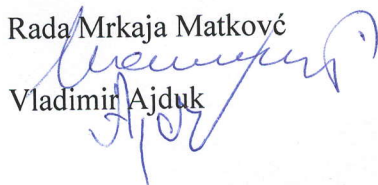 Rada Mrkaja Matkovć
Vladimir Ajduk